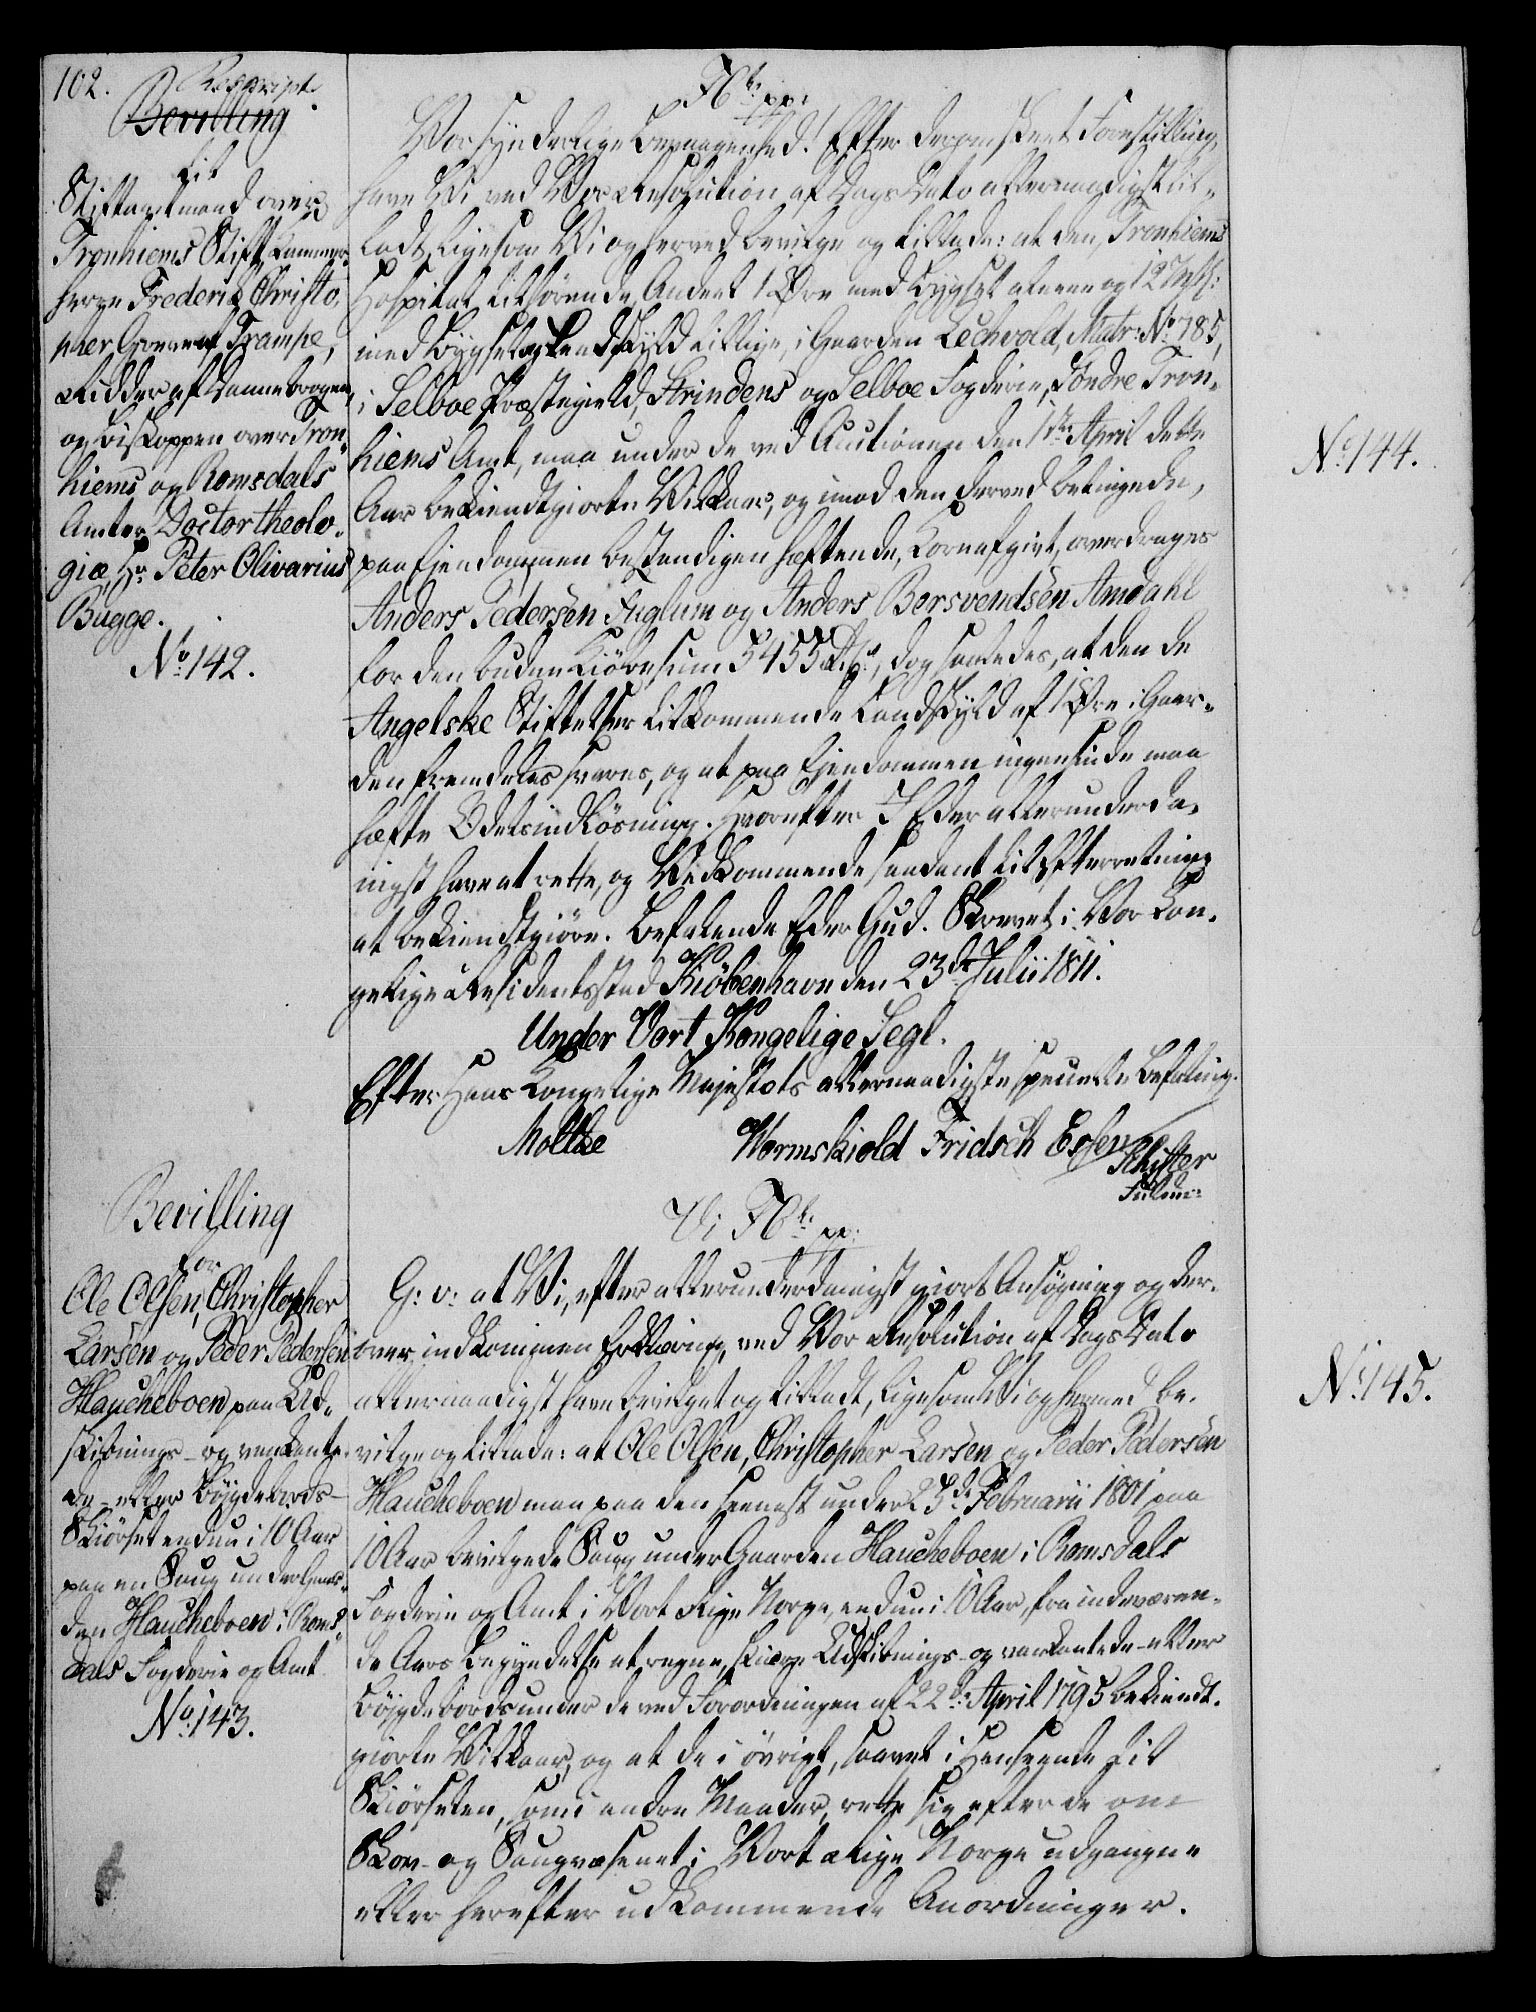 102.
Rescript
Bevilling
til
Stiftamtmand over
Tronhiems Stift, Kammer-
herre Frederik Christo-
pher Greve af Trampe,
Ridder af Dannebrogen,
og Biskoppen over Tron-
hiems og Romsdals
Amter, Doctor theolo-
giæ, Hr Peter Olivarius
Bugge.
No 142.
Fr. 6te pp:
Vor synderlige Bevaagenhed! Efter derom skeet Forestilling
have Vi ved Vor Resolution af Dags Dato allernaadigst til-
ladt, ligesom Vi og herved bevilge og tillade: at den, Tronhiems
Hospital tilhørende Andeel 1 Øre med Bygsel alene og 12 Mkl:
med Bygsel og Landskyld tillige, i Gaarden Lechvold, Matr: No 785,
i Selboe Præstegield, Strindens og Selboe Fogderie, Søndre Tron-
hiems Amt, maa under de ved Auctionen den 1ste April dette
Aar bekiendtgiorte Vilkaar, og imod den derved betingede,
paa Eiendommen bestandigen hæftende, Kornafgivt, overdrages
Anders Pedersen Fuglum og Anders Bersvendsen Amdahl
for den budne Kiøbesum 5455 Rd, dog saaledes, at den de
Angelske Stiftelser tilkommende Landskyld af 1 Øre i Gaar-
den fremdeles svares, og at paa Eiendommen ingensinde maa
hæfte Odelsindløsning. Hvorefter I Eder allerunderda-
nigst have at rette, og Vedkommende saadant til Efterretning
at bekiendtgiøre. Befalende Eder Gud. Skrevet i Vor Kon-
gelige Residentsstad Kiöbenhavn den 23de Julii 1811.
Under Vort Kongelige Segl.
Efter Hans Kongelige Majestæts allernaadigste specielle Befaling.
Moltke Wormskiold Fridsch Essen
No 144.
Bevilling
for
Ole Olsen, Christopher
Larsen og Peder Pedersen
Haucheboen paa Ud-
skibnings- og vankante-
de- eller Bøygdebords-
Skiørsel endnu i 10 Aar
paa en Saug under Gaar-
den Haucheboen i Roms-
dals Fogderie og Amt
No 143.
Vi Fr. 6te pp:
G: v: at Vi, efter allerunderdanigst giort Ansøgning og der-
over indkommen Erklæring, ved Vor Resolution af Dags Dato
allernaadigst have bevilget og tilladt, ligesom Vi og herved be-
vilge og tillade: at Ole Olsen, Christopher Larsen og Peder Pedersen
Haucheboen maa paa den seeneste under 25de Februarii 1801 paa
10 Aar bevilgede Saug under Gaarden Haucheboen i Romsdals
Fogderie og Amt i Vort Rige Norge, endnu i 10 Aar, fra indeværen-
de Aars Begyndelse at regne, skiære Udskibnings- og vankantede- eller
Bøygdebord under de ved Forordningen af 22de April 1795 bekiendt-
giorte Vilkaar, og at de i øvrigt, saavel i Henseende til
Skiørselen, som i andre Maader, rette sig efter de om
Skov- og Saugvæsenet i Vort Rige Norge udgangne
eller herefter udkommende Anordninger.
No 145.